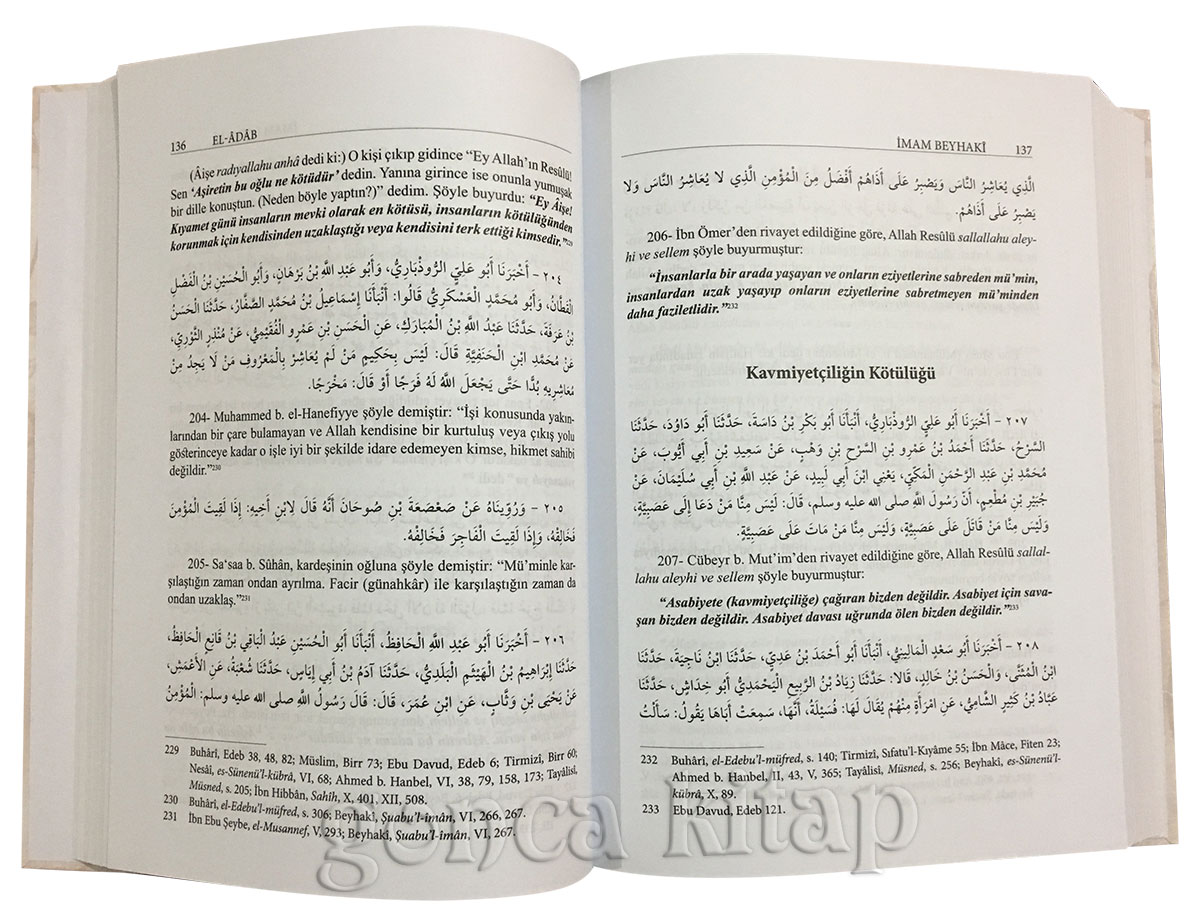 136 EL-ÂDÂB
(Âişe radıyallahu anhâ dedi ki:) O kişi çıkıp gidince “Ey Allah’ın Resûlü!
Sen ‘Aşiretin bu oğlu ne kötüdür’ dedin. Yanına girince ise onunla yumuşak
bir dille konuştun. (Neden böyle yaptın?)” dedim. Şöyle buyurdu: “Ey Âişe!
Kıyamet günü insanların mevki olarak en kötüsü, insanların kötülüğünden
korunmak için kendisinden uzaklaştığı veya kendisini terk ettiği kimsedir.”229
٢٠٤ - أَخْبَرَنَا أَبُو عَلِيٍّ الرُّوذْبَارِيُّ، وَأَبُو عَبْدِ اللَّهِ بْنُ بَرْهَانَ، وَأَبُو الْحُسَيْنِ بْنُ الْفَضْلِ
الْقَطَّانُ، وَأَبُو مُحَمَّدٍ السُّكَّرِيُّ قَالُوا: أَنْبَأَنَا إِسْمَاعِيلُ بْنُ مُحَمَّدٍ الصَّفَّارُ، حَدَّثَنَا الْحَسَنُ
بْنُ عَرَفَةَ، حَدَّثَنَا عَبْدُ اللَّهِ بْنُ الْمُبَارَكِ، عَنِ الْحَسَنِ بْنِ عَمْرٍو الْفُقَيْمِيِّ، عَنْ مُنْذِرٍ الثَّوْرِيِّ،
عَنْ مُحَمَّدِ ابْنِ الْحَنَفِيَّةِ قَالَ: لَيْسَ بِحَكِيمٍ مَنْ لَمْ يُعَاشِرْ بِالْمَعْرُوفِ مَنْ لَا يَجِدُ مِنْ
مُعَاشِرِيهِ بُدًّا حَتَّى يَجْعَلَ اللَّهُ لَهُ فَرَجًا أَوْ قَالَ: مَخْرَجًا.
204- Muhammed b. el-Hanefiyye şöyle demiştir: “İşi konusunda yakın-
larından bir çare bulamayan ve Allah kendisine bir kurtuluş veya çıkış yolu
gösterinceye kadar o işle iyi bir şekilde idare edemeyen kimse, hikmet sahibi
değildir.”230
٢٠٥ - وَرُوِّينَاهُ عَنْ صَعْصَعَةَ بْنِ صُوحَانَ أَنَّهُ قَالَ لِابْنِ أَخِيهِ: إِذَا لَقِيتَ الْمُؤْمِنَ
فَخَالِقْهُ، وَإِذَا لَقِيتَ الْفَاجِرَ فَخَالِفْهُ.
205- Sa‘saa b. Sûhân, kardeşinin oğluna şöyle demiştir: “Mü’minle kar-
şılaştığın zaman ondan ayrılma. Facir (günahkâr) ile karşılaştığın zaman da
ondan uzaklaş.”231
٢٠٦ - أَخْبَرَنَا أَبُو عَبْدِ اللَّهِ الْحَافِظُ، أَنْبَأَنَا أَبُو الْحُسَيْنِ عَبْدُ الْبَاقِي بْنُ قَانِعٍ الْحَافِظُ،
حَدَّثَنَا إِبْرَاهِيمُ بْنُ الْهَيْثَمِ الْبَلَدِيُّ، حَدَّثَنَا آدَمُ بْنُ أَبِي إِيَاسٍ، حَدَّثَنَا شُعْبَةُ، عَنِ الْأَعْمَشِ،
عَنْ يَحْيَى بْنِ وَثَّابٍ، عَنِ ابْنِ عُمَرَ، قَالَ: قَالَ رَسُولُ اللَّهِ صلى الله عليه وسلم: الْمُؤْمِنُ
229 Buhârî, Edeb 38, 48, 82; Müslim, Birr 73; Ebu Davud, Edeb 6; Tirmizî, Birr 60;
Nesâî, es-Sünenü’l-kübrâ, VI, 68; Ahmed b. Hanbel, VI, 38, 79, 158, 173; Tayâlisî,
Müsned, s. 205; İbn Hibbân, Sahîh, X, 401, XII, 508.
230 Buhârî, el-Edebu’l-müfred, s. 306; Beyhakî, Şuabu’l-îmân, VI, 266, 267.
231 İbn Ebu Şeybe, el-Musannef, V, 293; Beyhakî, Şuabu’l-îmân, VI, 267.
İMAM BEYHAKÎ 137
الَّذِي يُعَاشِرُ النَّاسَ وَيَصْبِرُ عَلَى أَذَاهُمْ أَفْضَلُ مِنَ الْمُؤْمِنِ الَّذِي لَا يُعَاشِرُ النَّاسَ وَلَا
يَصْبِرُ عَلَى أَذَاهُمْ.
206- İbn Ömer’den rivayet edildiğine göre, Allah Resûlü sallallahu aley-
hi ve sellem şöyle buyurmuştur:
“İnsanlarla bir arada yaşayan ve onların eziyetlerine sabreden mü’min,
insanlardan uzak yaşayıp onların eziyetlerine sabretmeyen mü’minden
daha faziletlidir.”232
Kavmiyetçiliğin Kötülüğü
٢٠٧ - أَخْبَرَنَا أَبُو عَلِيٍّ الرُّوذْبَارِيُّ، أَنْبَأَنَا أَبُو بَكْرِ بْنُ دَاسَةَ، حَدَّثَنَا أَبُو دَاوُدَ، حَدَّثَنَا
السَّرْحُ، حَدَّثَنَا أَحْمَدُ بْنُ عَمْرِو بْنِ السَّرْحِ بْنِ وَهْبٍ، عَنْ سَعِيدِ بْنِ أَبِي أَيُّوبَ، عَنْ
مُحَمَّدِ بْنِ عَبْدِ الرَّحْمَنِ الْمَكِّيِّ، يَعْنِي ابْنَ أَبِي لَبِيدٍ، عَنْ عَبْدِ اللَّهِ بْنِ أَبِي سُلَيْمَانَ، عَنْ
جُبَيْرِ بْنِ مُطْعِمٍ، أَنَّ رَسُولَ اللَّهِ صلى الله عليه وسلم، قَالَ: لَيْسَ مِنَّا مَنْ دَعَا إِلَى عَصَبِيَّةٍ،
وَلَيْسَ مِنَّا مَنْ قَاتَلَ عَلَى عَصَبِيَّةٍ، وَلَيْسَ مِنَّا مَنْ مَاتَ عَلَى عَصَبِيَّةٍ.
207- Cübeyr b. Mut‘im’den rivayet edildiğine göre, Allah Resûlü sallal-
lahu aleyhi ve sellem şöyle buyurmuştur:
“Asabiyete (kavmiyetçiliğe) çağıran bizden değildir. Asabiyet için sava-
şan bizden değildir. Asabiyet davası uğrunda ölen bizden değildir.”233
٢٠٨ - أَخْبَرَنَا أَبُو سَعْدٍ الْمَالِينِيُّ، أَنْبَأَنَا أَبُو أَحْمَدَ بْنُ عَدِيٍّ، حَدَّثَنَا ابْنُ نَاجِيَةَ، حَدَّثَنَا
ابْنُ الْمُثَنَّى، وَالْحَسَنُ بْنُ خَالِدٍ، قَالَا: حَدَّثَنَا زِيَادُ بْنُ الرَّبِيعِ الْيَحْمَدِيُّ أَبُو خِدَاشٍ، حَدَّثَنَا
عَبَّادُ بْنُ كَثِيرٍ الشَّامِيُّ، عَنِ امْرَأَةٍ مِنْهُمْ يُقَالُ لَهَا: فُسَيْلَةُ، أَنَّهَا، سَمِعَتْ أَبَاهَا يَقُولُ: سَأَلْتُ
232 Buhârî, el-Edebu’l-müfred, s. 140; Tirmizî, Sıfatu’l-Kıyâme 55; İbn Mâce, Fiten 23;
Ahmed b. Hanbel, II, 43, V, 365; Tayâlisî, Müsned, s. 256; Beyhakî, es-Sünenü’l-
kübrâ, X, 89.
233 Ebu Davud, Edeb 121.
gonca kitap